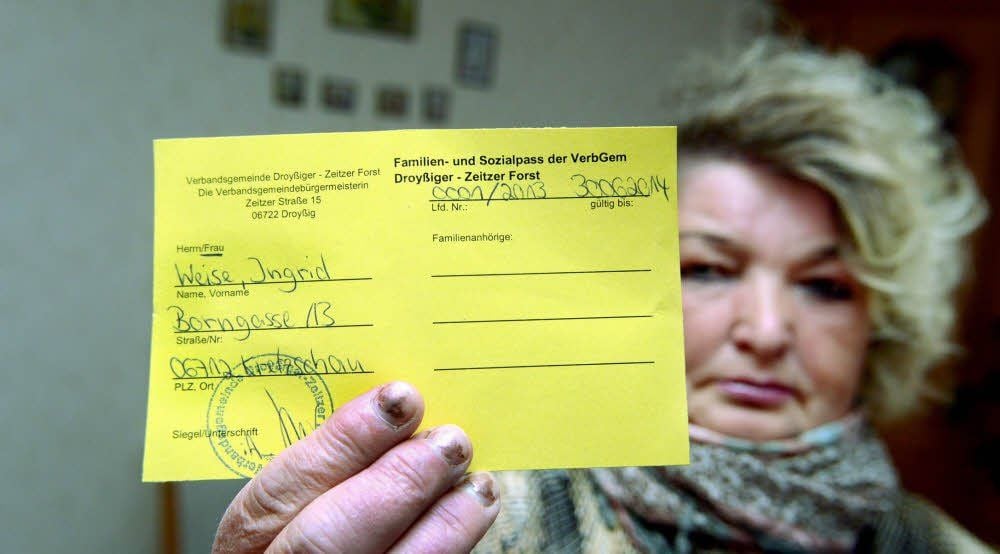 Verbandsgemeinde Droyßiger - Zeitzer Forst
Die Verbandsgemeindebürgermeisterin
Zeitzer Straße 15
06722 Droyßig
Herrn/Frau
Weise, Ingrid
Name, Vorname
Borngasse 13
Straße/Nr:
06712 Kretzschau
PLZ, Ort
Siegel/Unterschrift
Familien- und Sozialpass der VerbGem
Droyßiger - Zeitzer Forst
0001/2013 30062014
Lfd. Nr.: gültig bis:
Familienanhörige: